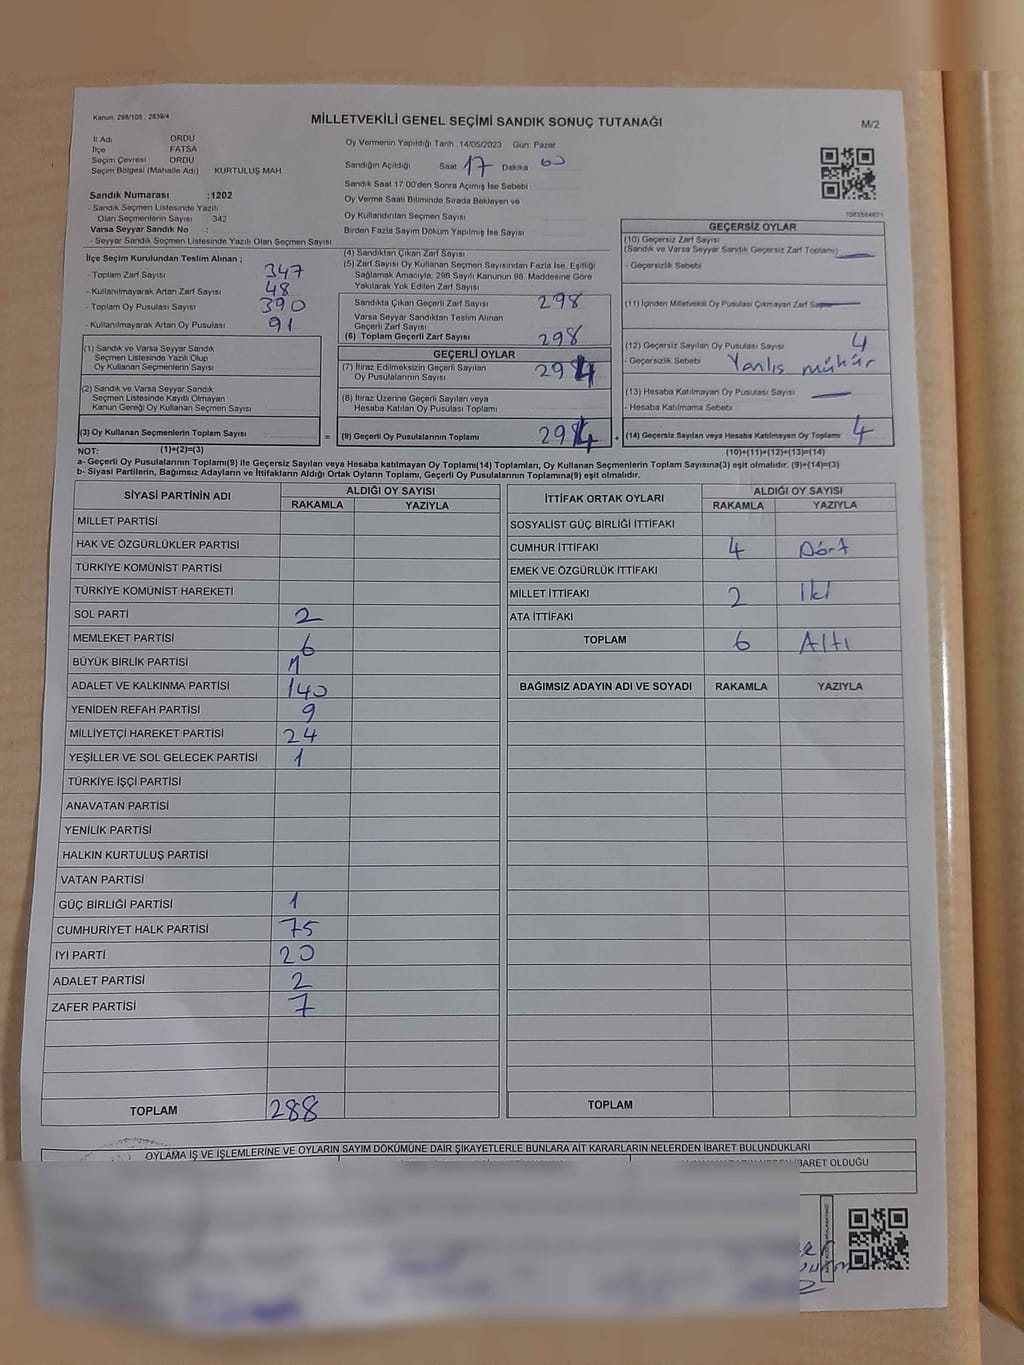 Kanun, 298/105 , 2839/4
MİLLETVEKİLİ GENEL SEÇİMİ SANDIK SONUÇ TUTANAĞI
M/2
İl Adı ORDU
İlçe FATSA
Seçim Çevresi ORDU
Seçim Bölgesi (Mahalle Adı) KURTULUŞ MAH.
Sandık Numarası :1202
- Sandık Seçmen Listesinde Yazılı
Olan Seçmenlerin Sayısı 342
Varsa Seyyar Sandık No :
- Seyyar Sandık Seçmen Listesinde Yazılı Olan Seçmen Sayısı
Oy Vermenin Yapıldığı Tarih 14/05/2023 Gün: Pazar
Sandığın Açıldığı Saat 17 Dakika
Sandık Saat 17.00'den Sonra Açımış İse Sebebi
Oy Verme Saati Bitiminde Sırada Bekleyen ve
Oy Kullandırılan Seçmen Sayısı
Birden Fazla Sayım Döküm Yapılmış İse Sayısı
1083584871
İlçe Seçim Kurulundan Teslim Alınan ;
- Toplam Zarf Sayısı 347
- Kullanılmayarak Artan Zarf Sayısı 48
- Toplam Oy Pusulası Sayısı 390
- Kullanılmayarak Artan Oy Pusulası 91
(1) Sandık ve Varsa Seyyar Sandık
Seçmen Listesinde Yazılı Olup
Oy Kullanan Seçmenlerin Sayısı
(2) Sandık ve Varsa Seyyar Sandık
Seçmen Listesinde Kayıtlı Olmayan
Kanun Gereği Oy Kullanan Seçmen Sayısı
(3) Oy Kullanan Seçmenlerin Toplam Sayısı =
(4) Sandıktan Çıkan Zarf Sayısı
(5) Zarf Sayısı Oy Kullanan Seçmen Sayısından Fazla İse, Eşitliği
Sağlamak Amacıyla, 298 Sayılı Kanunun 98. Maddesine Göre
Yakılarak Yok Edilen Zarf Sayısı
Sandıkta Çıkan Geçerli Zarf Sayısı 298
Varsa Seyyar Sandıktan Teslim Alınan
Geçerli Zarf Sayısı
(6) Toplam Geçerli Zarf Sayısı 298
GEÇERLİ OYLAR
(7) İtiraz Edilmeksizin Geçerli Sayılan
Oy Pusulalarının Sayısı 294
(8) İtiraz Üzerine Geçerli Sayılan veya
Hesaba Katılan Oy Pusulası Toplamı
(9) Geçerli Oy Pusulalarının Toplamı 294 +
GEÇERSİZ OYLAR
(10) Geçersiz Zarf Sayısı
(Sandık ve Varsa Seyyar Sandık Geçersiz Zarf Toplamı)
- Geçersizlik Sebebi
(11) İçinden Milletvekili Oy Pusulası Çıkmayan Zarf Sayısı
(12) Geçersiz Sayılan Oy Pusulası Sayısı 4
- Geçersizlik Sebebi Yanlış mühür
(13) Hesaba Katılmayan Oy Pusulası Sayısı
- Hesaba Katılmama Sebebi
(14) Geçersiz Sayılan veya Hesaba Katılmayan Oy Toplamı 4
NOT: (1)+(2)=(3)
(10)+(11)+(12)+(13)=(14)
a- Geçerli Oy Pusulalarının Toplamı(9) ile Geçersiz Sayılan veya Hesaba katılmayan Oy Toplamı(14) Toplamları, Oy Kullanan Seçmenlerin Toplam Sayısına(3) eşit olmalıdır. (9)+(14)=(3)
b- Siyasi Partilerin, Bağımsız Adayların ve İttifakların Aldığı Ortak Oyların Toplamı, Geçerli Oy Pusulalarının Toplamına(9) eşit olmalıdır.
SİYASİ PARTİNİN ADI ALDIĞI OY SAYISI
RAKAMLA YAZIYLA
MİLLET PARTİSİ
HAK VE ÖZGÜRLÜKLER PARTİSİ
TÜRKİYE KOMÜNİST PARTİSİ
TÜRKİYE KOMÜNİST HAREKETİ
SOL PARTİ 2
MEMLEKET PARTİSİ 6
BÜYÜK BİRLİK PARTİSİ 1
ADALET VE KALKINMA PARTİSİ 140
YENİDEN REFAH PARTİSİ 9
MİLLİYETÇİ HAREKET PARTİSİ 24
YEŞİLLER VE SOL GELECEK PARTİSİ 1
TÜRKİYE İŞÇİ PARTİSİ
ANAVATAN PARTİSİ
YENİLİK PARTİSİ
HALKIN KURTULUŞ PARTİSİ
VATAN PARTİSİ
GÜÇ BİRLİĞİ PARTİSİ 1
CUMHURİYET HALK PARTİSİ 75
İYİ PARTİ 20
ADALET PARTİSİ 2
ZAFER PARTİSİ 7
TOPLAM 288
İTTİFAK ORTAK OYLARI ALDIĞI OY SAYISI
RAKAMLA YAZIYLA
SOSYALİST GÜÇ BİRLİĞİ İTTİFAKI
CUMHUR İTTİFAKI 4 Dört
EMEK VE ÖZGÜRLÜK İTTİFAKI
MİLLET İTTİFAKI 2 İki
ATA İTTİFAKI
TOPLAM 6 Altı
BAĞIMSIZ ADAYIN ADI VE SOYADI RAKAMLA YAZIYLA
TOPLAM
OYLAMA İŞ VE İŞLEMLERİNE VE OYLARIN SAYIM DÖKÜMÜNE DAİR ŞİKAYETLERLE BUNLARA AİT KARARLARIN NELERDEN İBARET BULUNDUKLARI
İBARET OLDUĞU